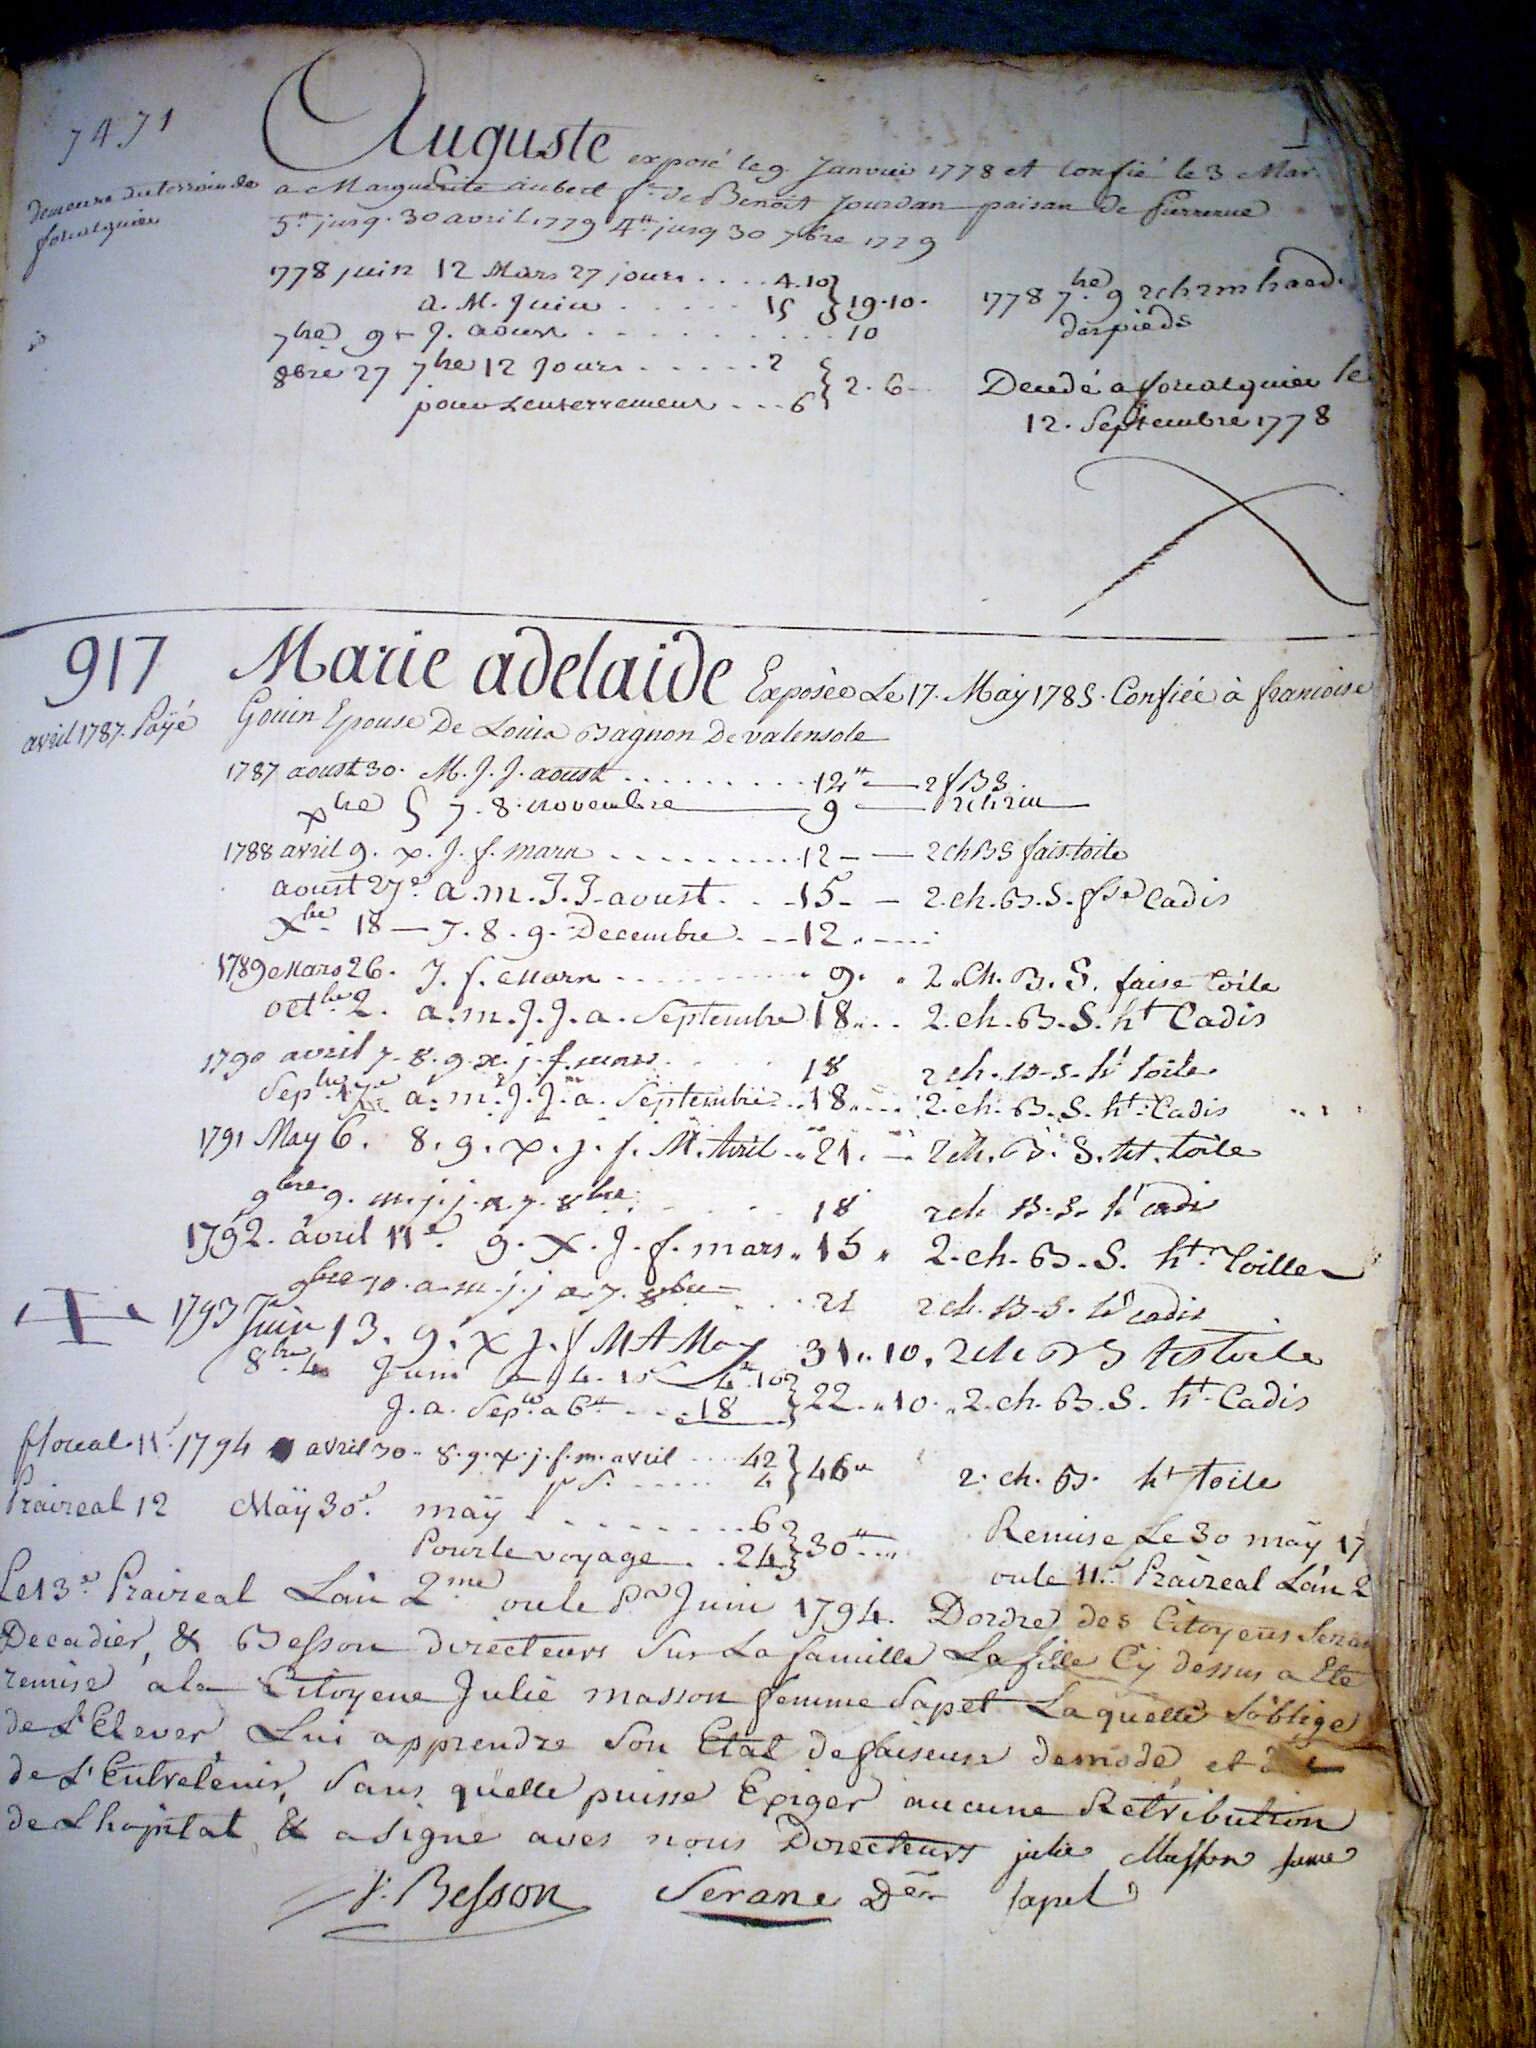 7471
1
Auguste exposé le 9 Janvier 1778 et Confié le 3 Mar
demeure du terroir de
forcalquier
a Marguerite aubert f.e de Benoît Jourdan paisan de pierrerue
5tt jusq. 30 avril 1779 4tt jusq 30 7bre 1779
1778 juin 12 Mars 27 jours .... 4.10 } 19.10.
a. M. Juin ..... 15
1778 7bre 9 2 ch 2 m
des pieds
7bre 9 J. aoust ......... 10
8bre 27 7bre 12 Jours ..... 2 } 2.6
pour Lenterrement ... 6
Decedé a forcalquier le
12. Septembre 1778
917 Marie adelaide Exposèe Le 17. May 1785. Confiée à francoise
avril 1787. Païé
Gouin Epouse De Louis Bagnon De valensole
1787 aoust 30. M. J. J. aoust ........ 12tt — 2 f B S.
xbre 5 7. 8. novembre — 9 —
1788 avril 9. x. J. f. mars .......... 12 — — 2 ch B S fais. toile
aoust 27e a. m. J. J. aoust. . - 15 - — 2. ch. B. S. fse Cadis
Xbre 18 — 7. 8. 9. Decembre. - - 12 . — .
1789 Mars 26. J. f. Mars ......... 9. „ 2. Ch. B. S. faise toile
octbre 2. a. m. J. J. a. Septembre 18 ... 2. ch. B. S. ht Cadis
1790 avril 7. 8. 9. x. j. f. mars. 18 2 ch. B. S. ht toile
Sepbre a. m. J. J. a. Septembre .. 18 .... 2. ch. B. S. ht Cadis
1791 May 6. 8. 9. x. j. f. M. Avril .. 21. — 2 ch. B. S. ht. toile
9bre 9. m. j. j. a. 7. 8bre. ..... 18 2 ch B. S. ht cadis
1792. avril 11e 9. X. J. f. mars „ 15 „ 2. ch. B. S. ht Toille
9bre 10. a. m. j. j a. 7. 8bre .... 21 2 ch. B. S. ht cadis
1793 Juin 13. 9. x J. f M A May 31 .. 10. 2 ch B S ht toile
8bre 4 Juin a 4. 10 4tt. 10 } 22 .. 10. „ 2. ch. B. S. ht Cadis
J. a. Sepbre a 6tt ... 18
floreal 11e 1794 avril 30. 8. 9. x. j. f. m. avril ... 42 } 46tt 2. ch. B. ht toile
p S. ..... 4
Praireal 12 Maÿ 30e maÿ ........ 6 } 30tt ...
Pour le voyage . . 24
Remise Le 30 maÿ 17
ou le 11e Praireal Lan 2
Le 13e Praireal Lan 2me ou le Pr Juin 1794. Dordre des Citoyens Seran
Decadier, & Besson directeurs Sur La famille La fille Cy dessus a Eté
remise a la Citoyene Julie masson femme Sapet Laquelle S'oblige
de L'Elever Lui apprendre Son Etat de faiseuse de mode et de
de L'Entretenir, Sans quelle puisse Exiger aucune Rétribution
de Lhopital, & a Signe avec nous Directeurs julie Masson fame
V. Besson Serane Dèr Sapet